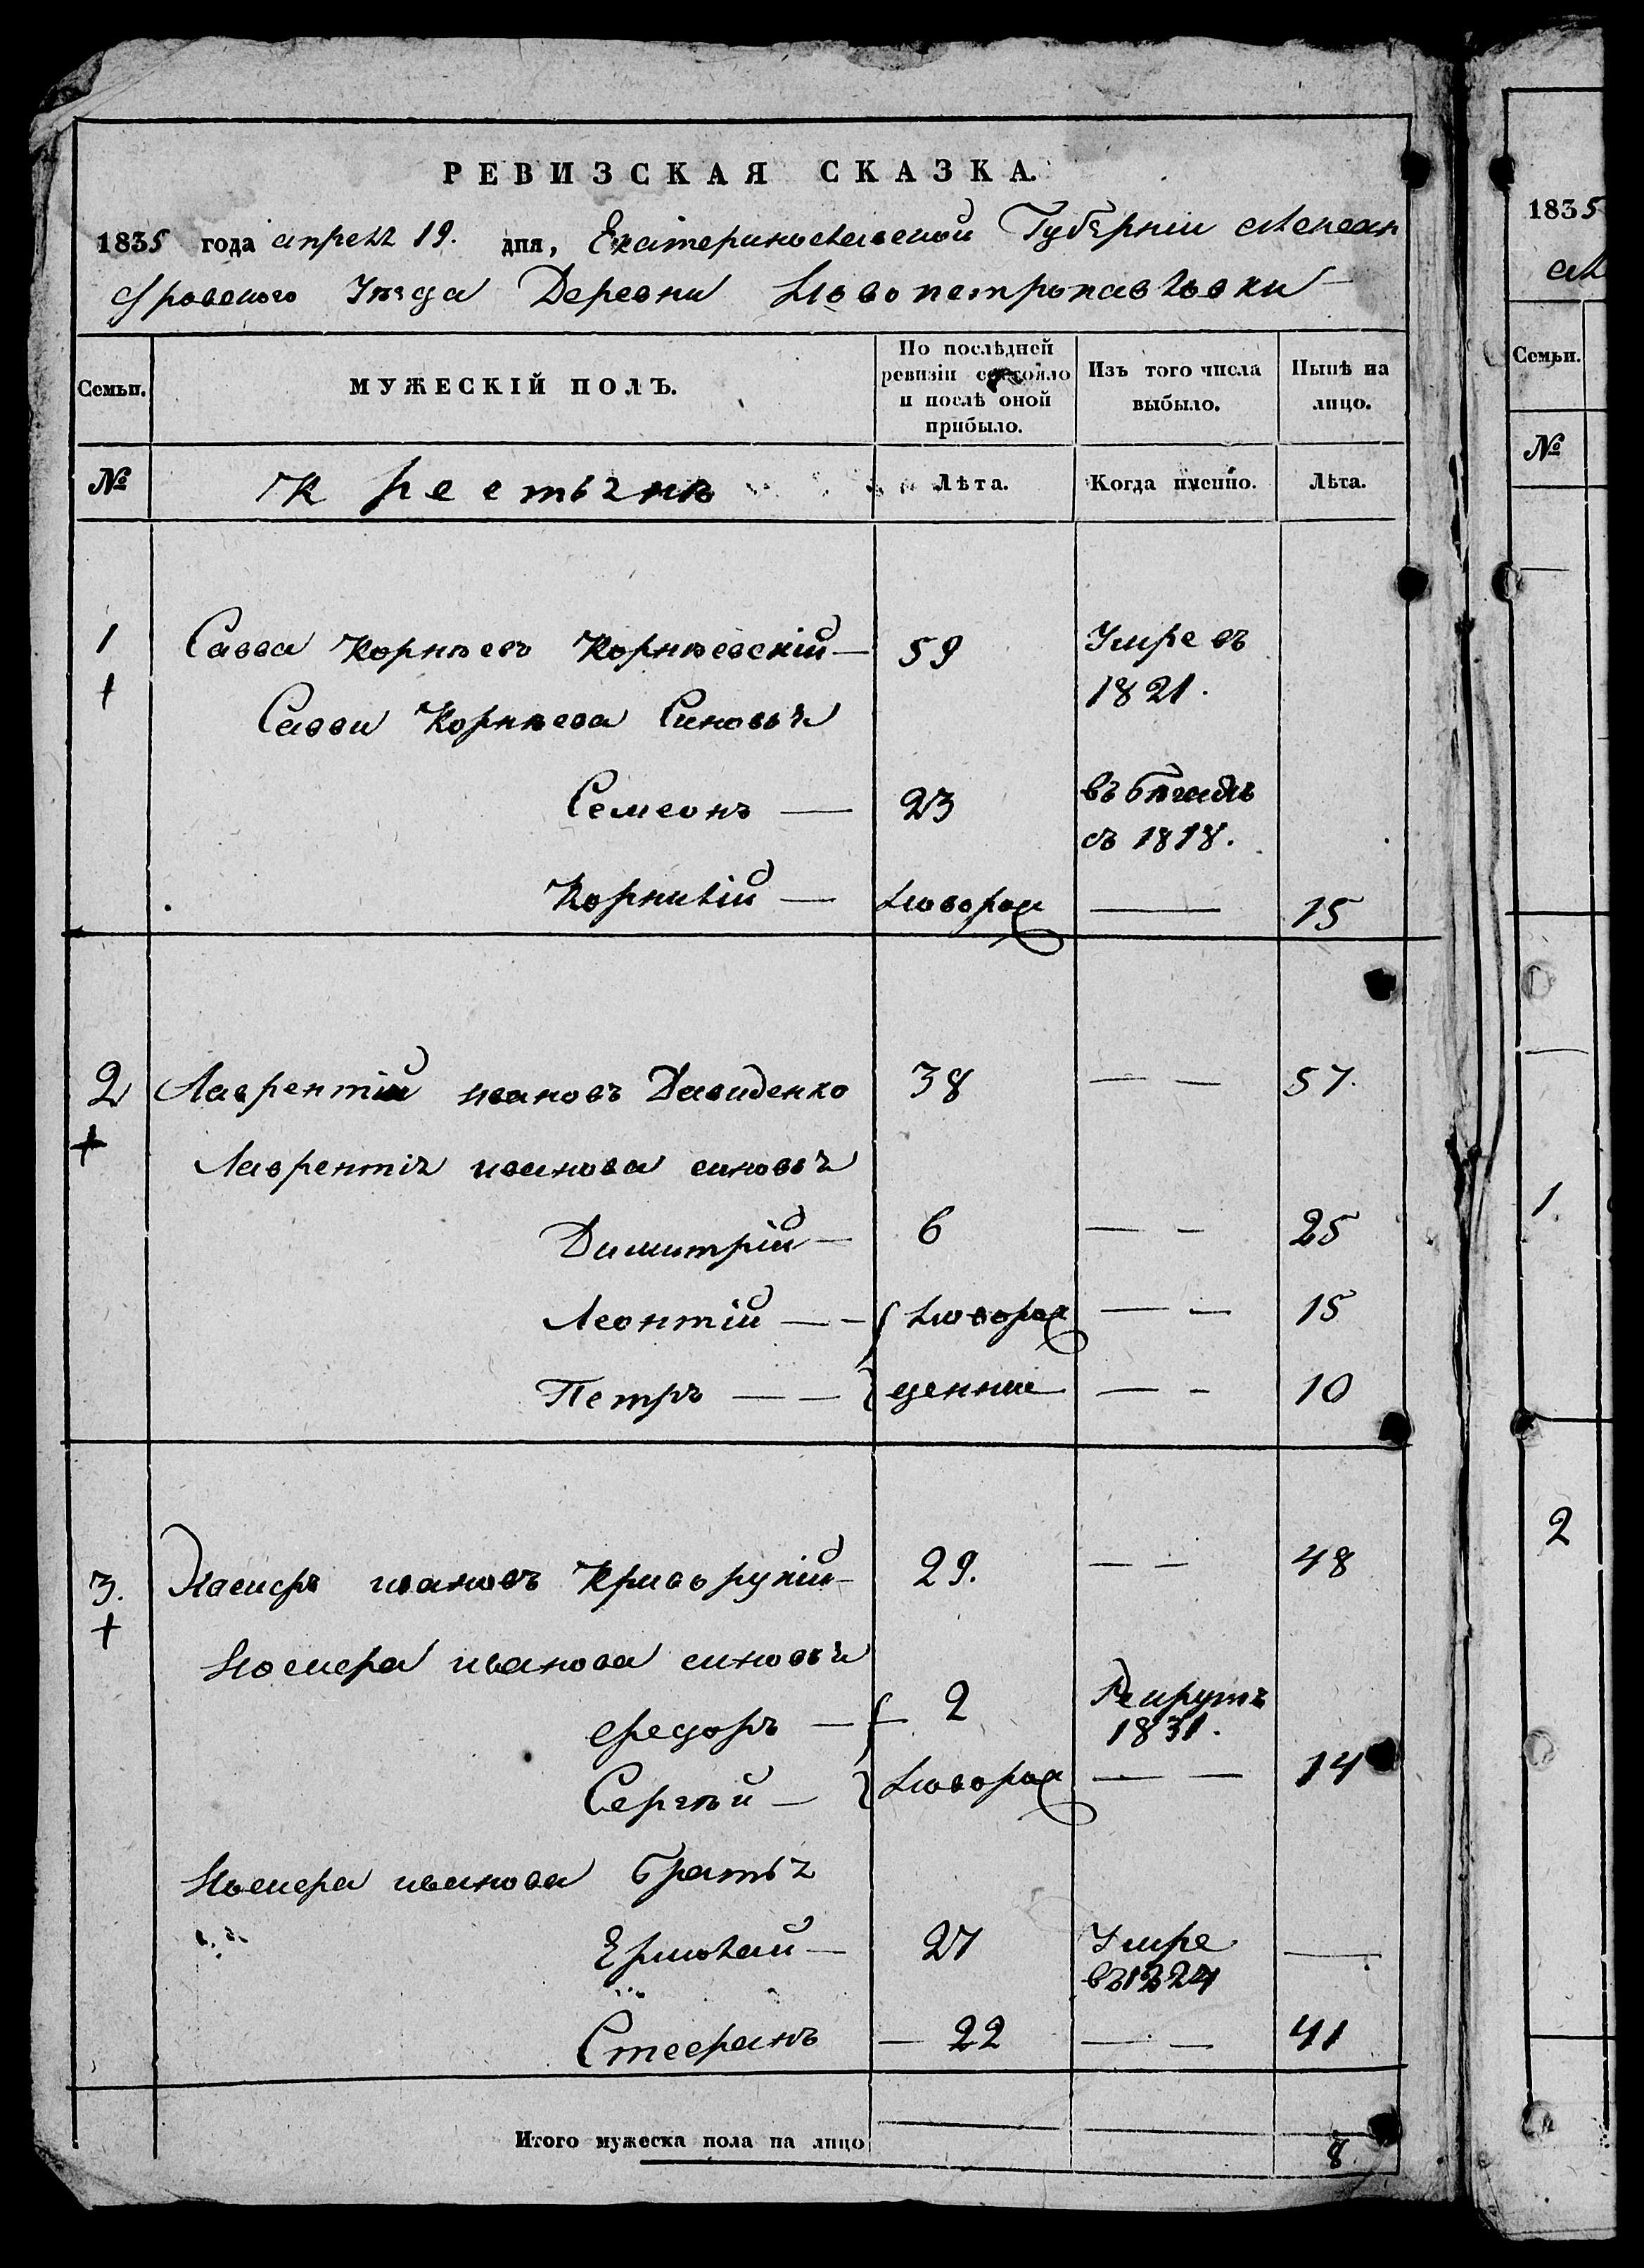 РЕВИЗСКАЯ СКАЗКА.
1835 года апреля 19. дня, Екатеринославской Губернии Алексан
дровского Уѣзда Деревни Новопетропавловки
Семьи.
МУЖЕСКІЙ ПОЛЪ.
По послѣдней
ревизіи состояло
и послѣ оной
прибыло.
Изъ того числа
выбыло.
Нынѣ на
лицо.
№ Крестьянъ Лѣта. Когда имеино. Лѣта.
1 Савва Корнѣевъ Корнѣевскій — 59 Умре въ
1821.
Савви Корнѣева Синовья
Семеонъ — 23 въ бѣгахъ
съ 1818.
Корнилій — Новорож — 15
2 Лаврентій ивановъ Давиденко 38 — — 57.
Лаврентія иванова синовья
Димитрій — 6 — — 25
Леонтій — — Новорож — — 15
Петръ — — денние — — 10
3. ивановъ Криворукій — 29. — — 48
иванова синовья
Федоръ — 2 Рекрутъ
1831.
Сергѣй — Новорож — — 14
иванова братья
Ермолай — 27 Умре —
въ 1824
Стефанъ — 22 — — 41
Итого мужеска пола на лицо 8
1835
Ал
Семьи.
№
1
2